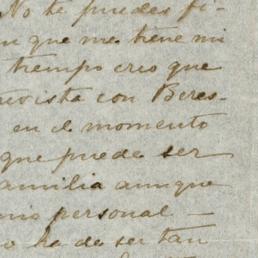 No te puedes fi-
n que me tiene mi
tiempo creo que
revista con Beres-
en el momento
que puede ser
familia aunque
mo personal —
o ha de ser tan